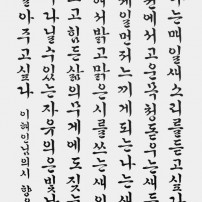 는매일새소리를듣고싶다
에서고운목청돋우는새들
게일먼저느끼게되는나는새
서밝고맑은시를쓰는새인
고힘든삶의무게에도짓
나닐수있는자유의은빛
아주고싶다 이해인님의시